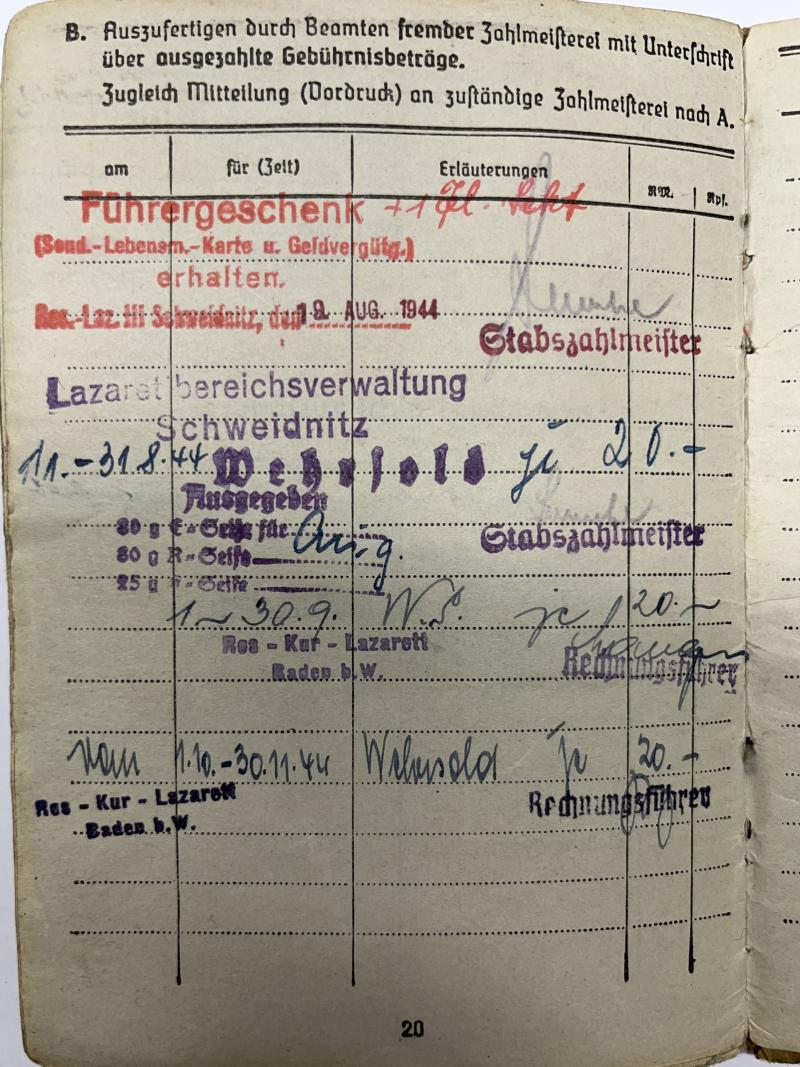 B. Auszufertigen durch Beamten fremder Zahlmeisterei mit Unterschrift
über ausgezahlte Gebührnisbeträge.
Zugleich Mitteilung (Vordruck) an zuständige Zahlmeisterei nach A.
am für (Zeit) Erläuterungen RM. Rpf.
Führergeschenk + 1 Fl. Sekt
(Sond.-Lebensm.-Karte u. Geldvergütg.)
erhalten.
Res.-Laz. III Schweidnitz, den 19. AUG. 1944
Stabszahlmeister
Lazarettbereichsverwaltung
Schweidnitz
11.-31.8.44 Wehrsold je 20.-
Ausgegeben
80 g E-Seife für Aug.
80 g R-Seife
Stabszahlmeister
25 g Seife
1.-30.9. W.S. je 20.-
Res - Kur - Lazarett
Baden b.W.
Rechnungsführer
vom 1.10.-30.11.44 Wehrsold je 20.-
Res - Kur - Lazarett
Baden b.W.
Rechnungsführer
20